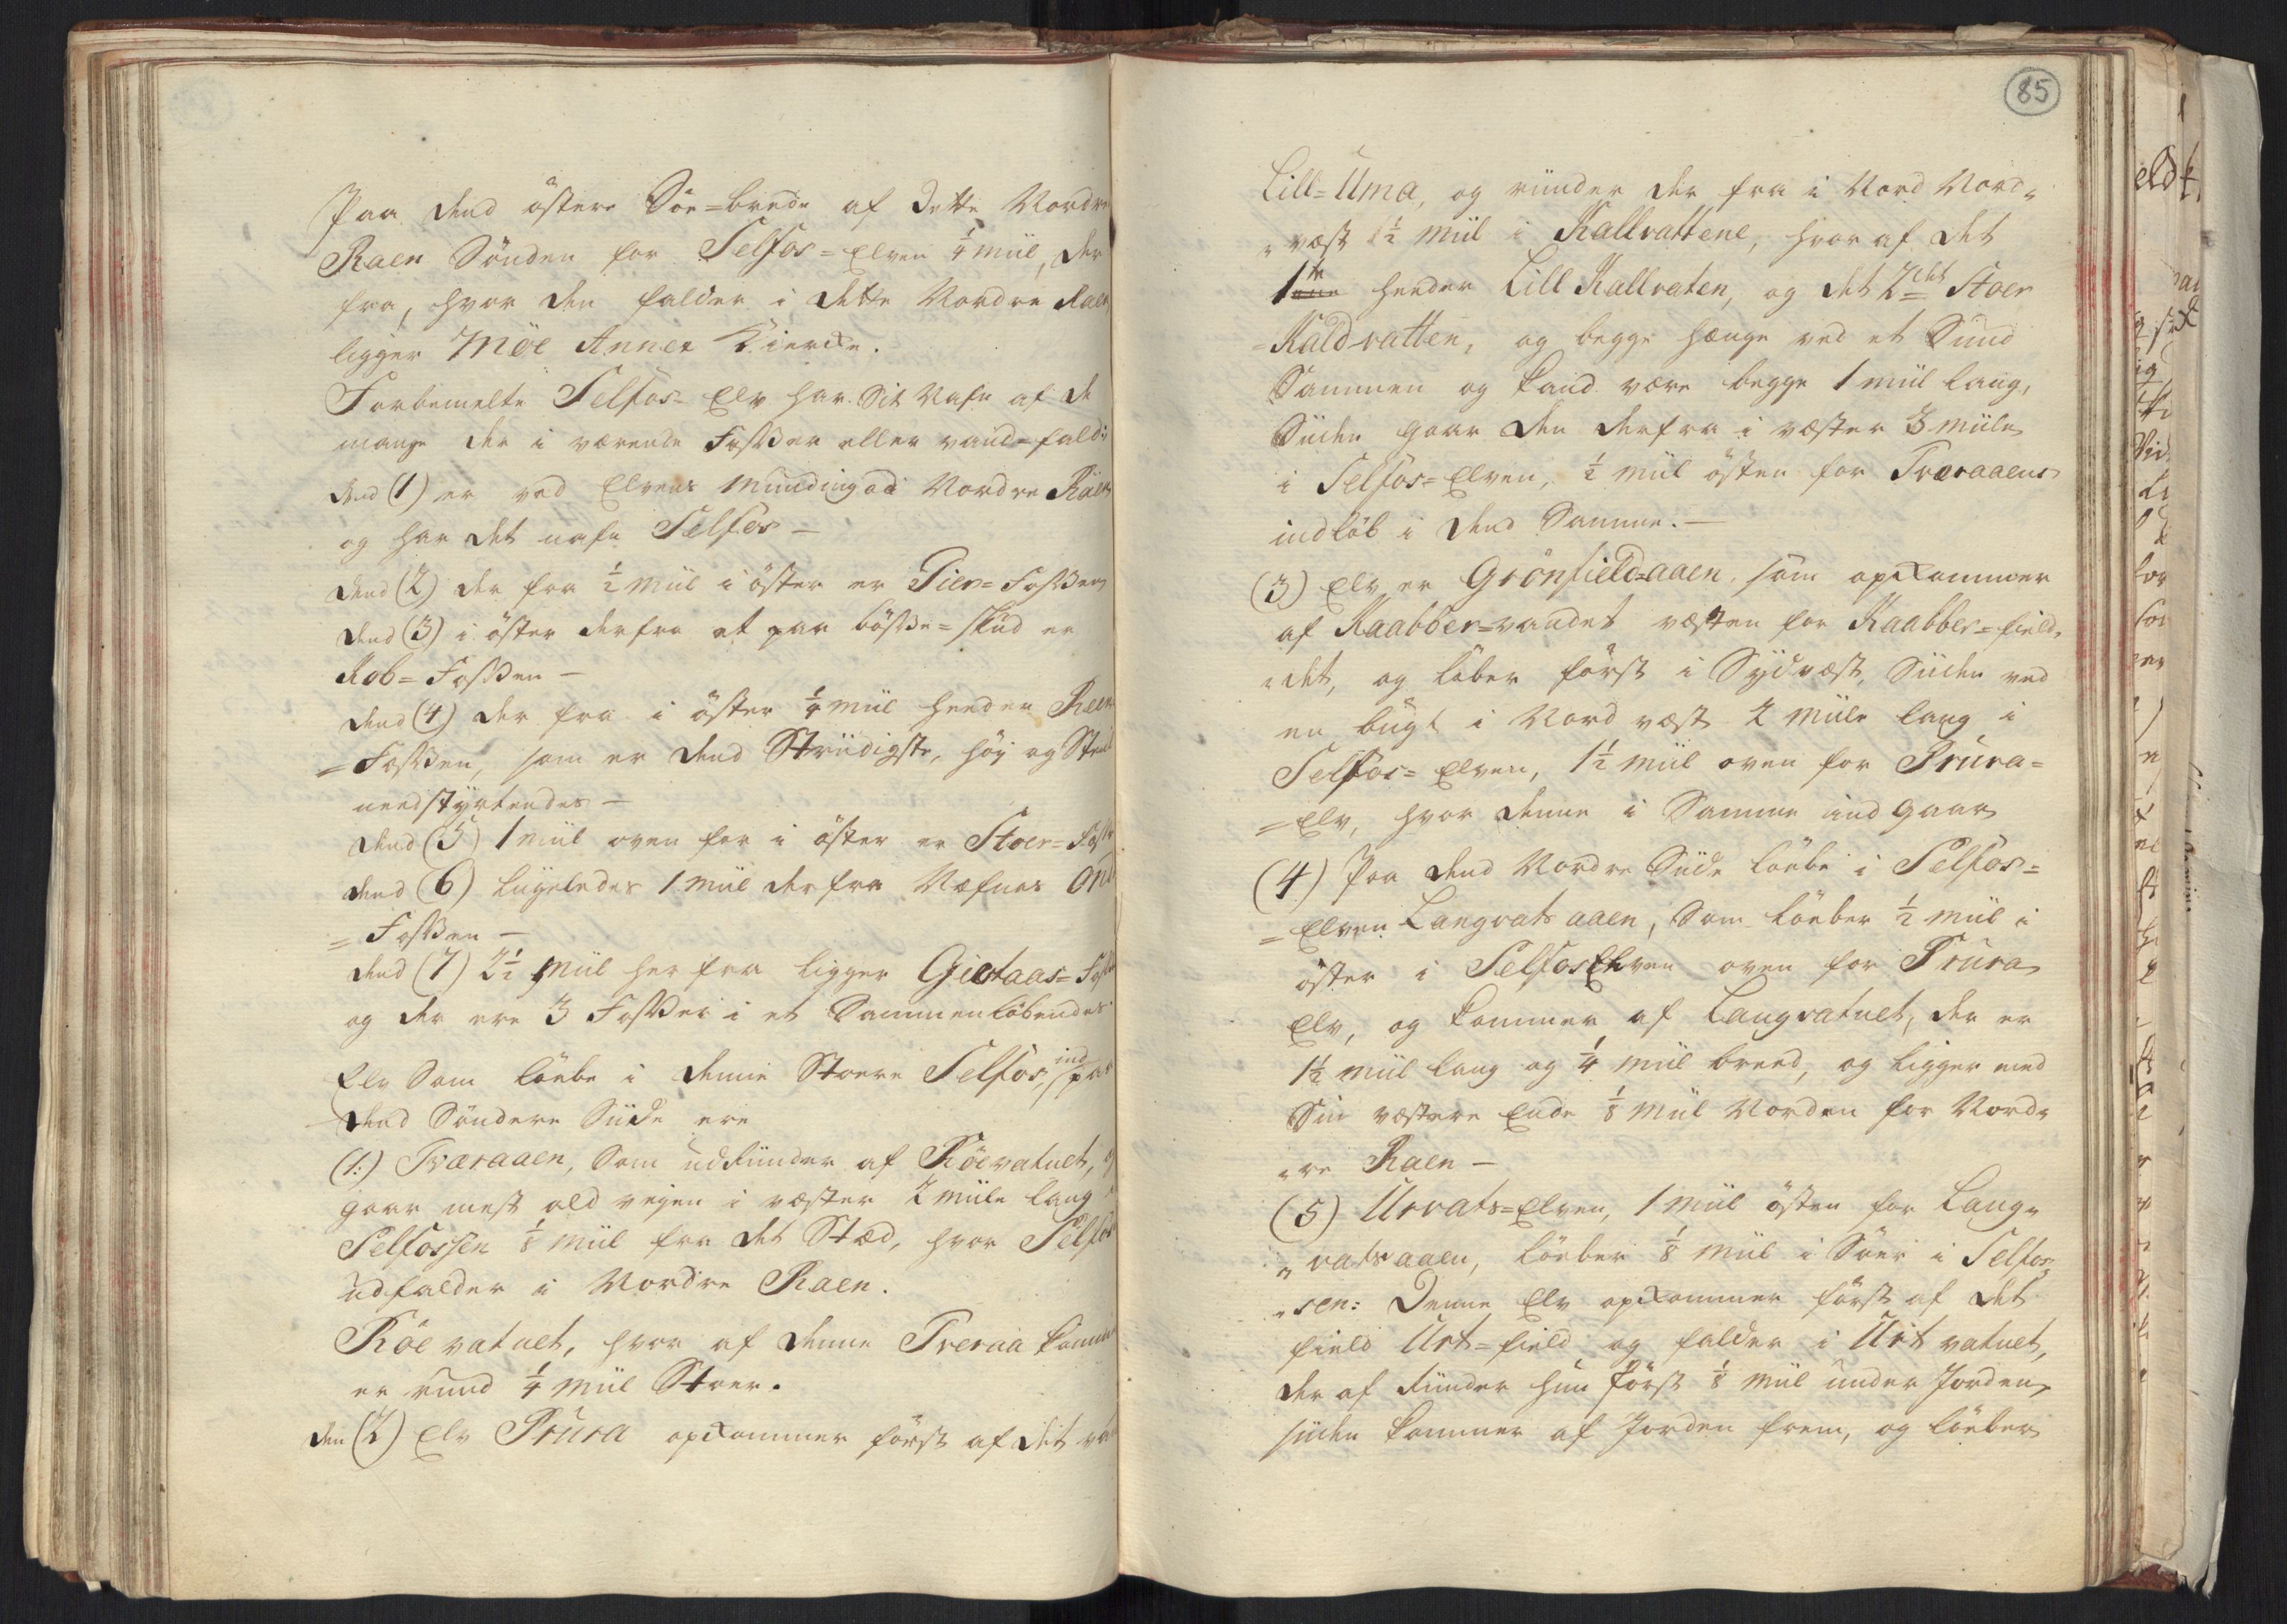 Paa dend östere Söe=brede af dette Nordre
Raen Sönden for Selfos=Elven ¼ miil, der
fra, hvor den falder i dette Nordre Raen
ligger Möe Annex Kiercke.
Forbemelte Selfos=Elv har sit Nafn af de
mange der i værende Fosser eller vand=fald:
dend (1) er ved Elvens Munding ad Nordre Raen
og har det nafn Selfos —
dend (2) der fra ½ Miil i öster er Tier=Fossen
dend (3) i öster derfra et par bösse=skud er
Rob=Fossen —
dend (4) der fra i öster ¼ miil heeder Reen
=Fossen, som er dend Striidigste, höy og
needstyrtendes —
dend (5) 1 miil oven for i öster er Stoer=
dend (6) ligeledes 1 Miil derfra Næfnes
=Fossen —
dend (7) 2½ Miil her fra ligger Giestaas=
og der ere 3 Fosser i et Sammenløbendes
Elv som löebe i denne Stoere Selfos, ind paa
dend Söndere Siide ere
(1:) Tværaaen, som udrinder af Röevatnet,
gaar mest ald vejen i væster 2 miile lang
Selfossen ⅛ miil fra det Stæd, hvor Selfos
udfalder i Nordre Raen.
Röevatnet, hvor af denne Tveraa kommer
er rund ¼ miil Stoer.
den (2) Elv Prura opkommer först af det
85
Lill=Uma, og rinder der fra i Nord Nord=
=væst 1½ miil i Kallvattene, hvoraf det
1te heeder Lill Kallvaten, og det 2det Stoer
=Kaldvatten, og begge hænge ved et Sund
Sammen og kand være begge 1 miil lang,
Siiden gaar den derfra i væster 3 miile
i Selfos=Elven, ½ miil östen for Tværaaens
indlöb i dend Samme. —
(3) Elv er Grönfield=aaen, som opkommer
af Kaabber=vandet væsten for Kaabber=field=
=det, og löber först i Sydvæst, Siiden ved
en bugt i Nord væst 2 Miile lang i
Selfos=Elven, 1½ miil oven for Prura=
=Elv, hvor denne i Samme ind gaar
(4) Paa dend Nordre Siide löebe i Selfos=
=Elven Langvats aaen, som löeber ½ miil i
öster i Selfos Elven oven for Prura
Elv, og kommer af Langvatnet, der er
1½ miil lang og ¼ miil breed, og ligger med
Sin væstere Ende ⅛ Miil Norden for Nord=
=re Raen —
(5) Urvats=Elven, 1 miil östen for Lang=
=vats aaen, löeber ⅛ miil i Söer i Selfos=
=sen: Denne Elv opkommer först af det
field Urt=field og falder i Urt vatnet,
der af rinder hun först ⅛ miil under Jorden,
siiden kommer af Jorden frem, og löeber